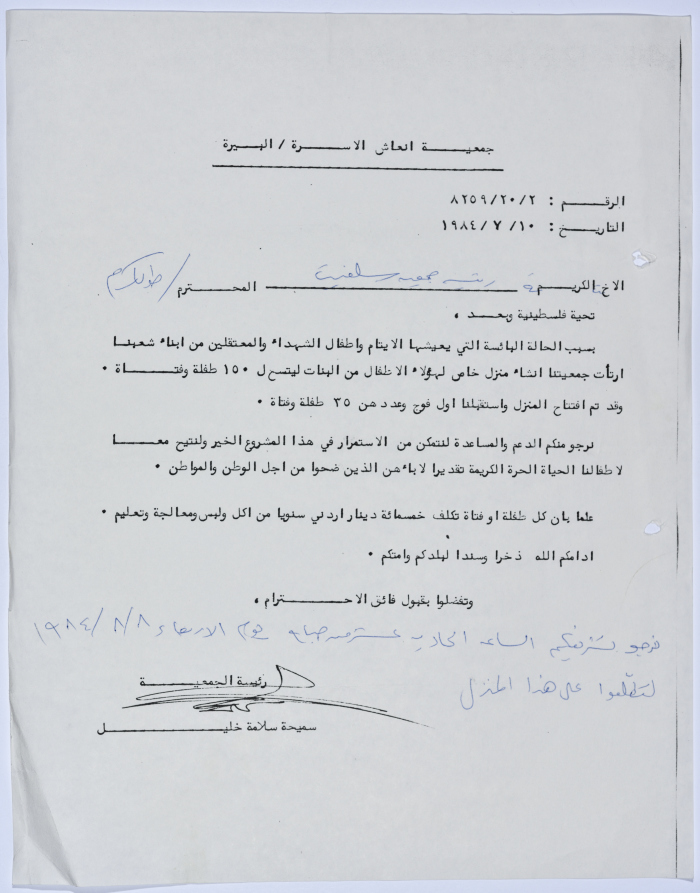 جمعيــة انعاش الاســرة / البيــرة
الرقــم : ٨٢٥٩/٢٠/٢
التاريــخ : ١٠/ ٧ /١٩٨٤
الاخ الكريمة رئيسة جمعية سلفيت المحترم / طولكرم
تحية فلسطينية وبعد ،
بسبب الحالة البائسة التي يعيشها الايتام واطفال الشهداء والمعتقلين من ابناء شعبنا
ارتأت جمعيتنا انشاء منزل خاص لهؤلاء الاطفال من البنات ليتسع ل ١٥٠ طفلة وفتــاة ٠
وقد تم افتتاح المنزل واستقبلنا اول فوج وعددهن ٣٥ طفلة وفتاة ٠
نرجو منكم الدعم والمساعدة لنتمكن من الاستمرار في هذا المشروع الخير ولنتيح معــا
لاطفالنا الحياة الحرة الكريمة تقديرا لاباءهن الذين ضحوا من اجل الوطن والمواطن ٠
علما بان كل طفلة او فتاة تكلف خمسمائة دينار اردني سنويا من اكل ولبس ومعالجة وتعليم ٠
ادامكم الله ذخرا وسندا لبلدكم وامتكم ٠
وتفضلوا بقبول فائق الاحــترام ،
نرجو تشريفكم الساعة الحادية عشرة من صباح يوم الاربعاء ١٩٨٤/٨/٨
لتطلعوا على هذا المنزل
رئيسة الجمعيــة
سميحة سلامة خليــل